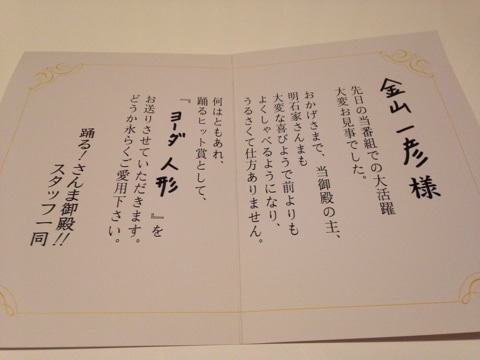 金山一彦様
先日の当番組での大活躍
大変お見事でした。
おかげさまで、当御殿の主、
明石家さんまも
大変な喜びようで前よりも
よくしゃべるようになり、
うるさくて仕方ありません。
何はともあれ、
踊るヒット賞として、
『ヨーダ人形』を
お送りさせていただきます。
どうか永らくご愛用下さい。
踊る!さんま御殿!!
スタッフ一同